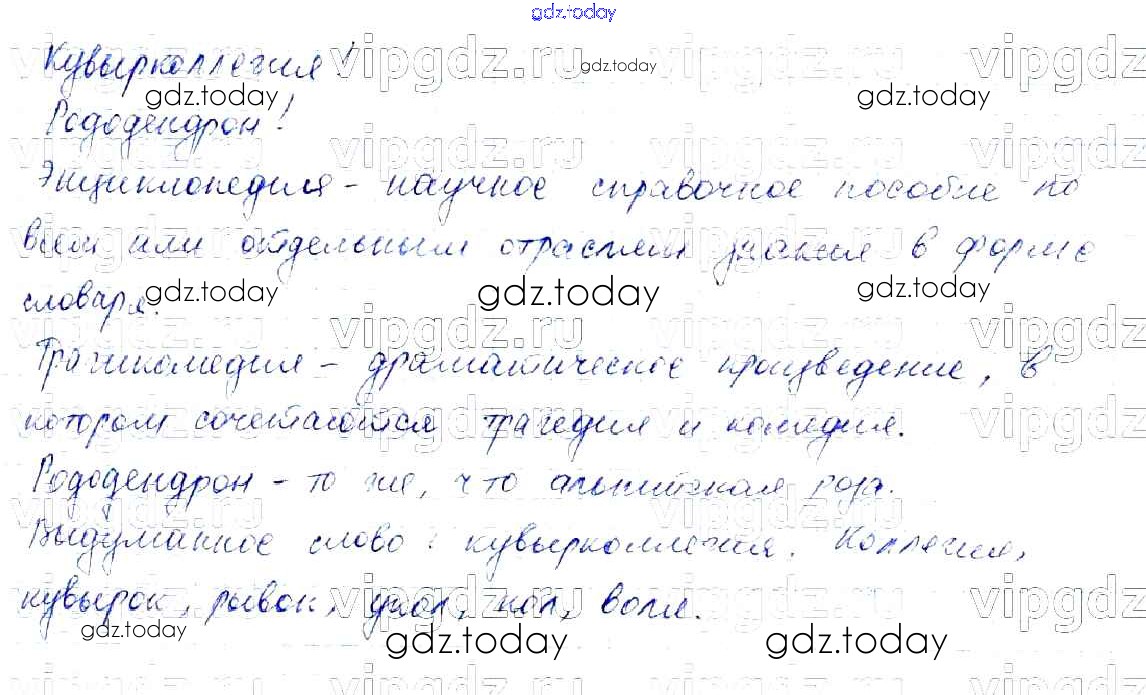 gdz.today
Кувырколлегия!
Рододендрон!
Энциклопедия - научное справочное пособие по
всем или отдельным отраслям знания в форме
словаря.
Трагикомедия - драматическое произведение, в
котором сочетаются трагедия и комедия.
Рододендрон - то же, что альпийская роза.
Выдуманное слово: кувырколлегия. Коллегия,
кувырок, рывок, укол, кол, воля.